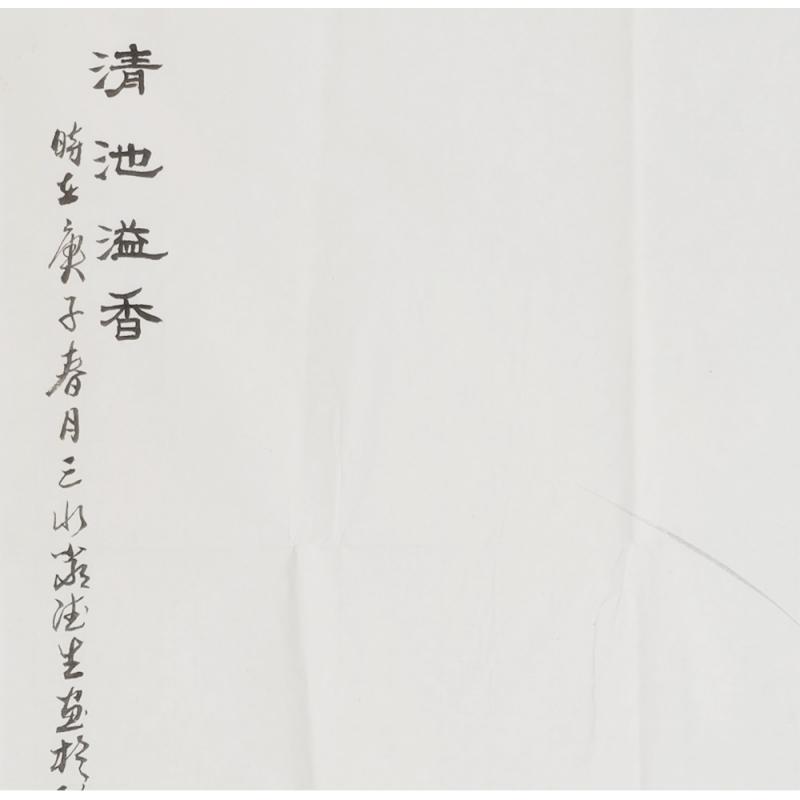 清池溢香
時在庚子春月三水嚴陸生画於